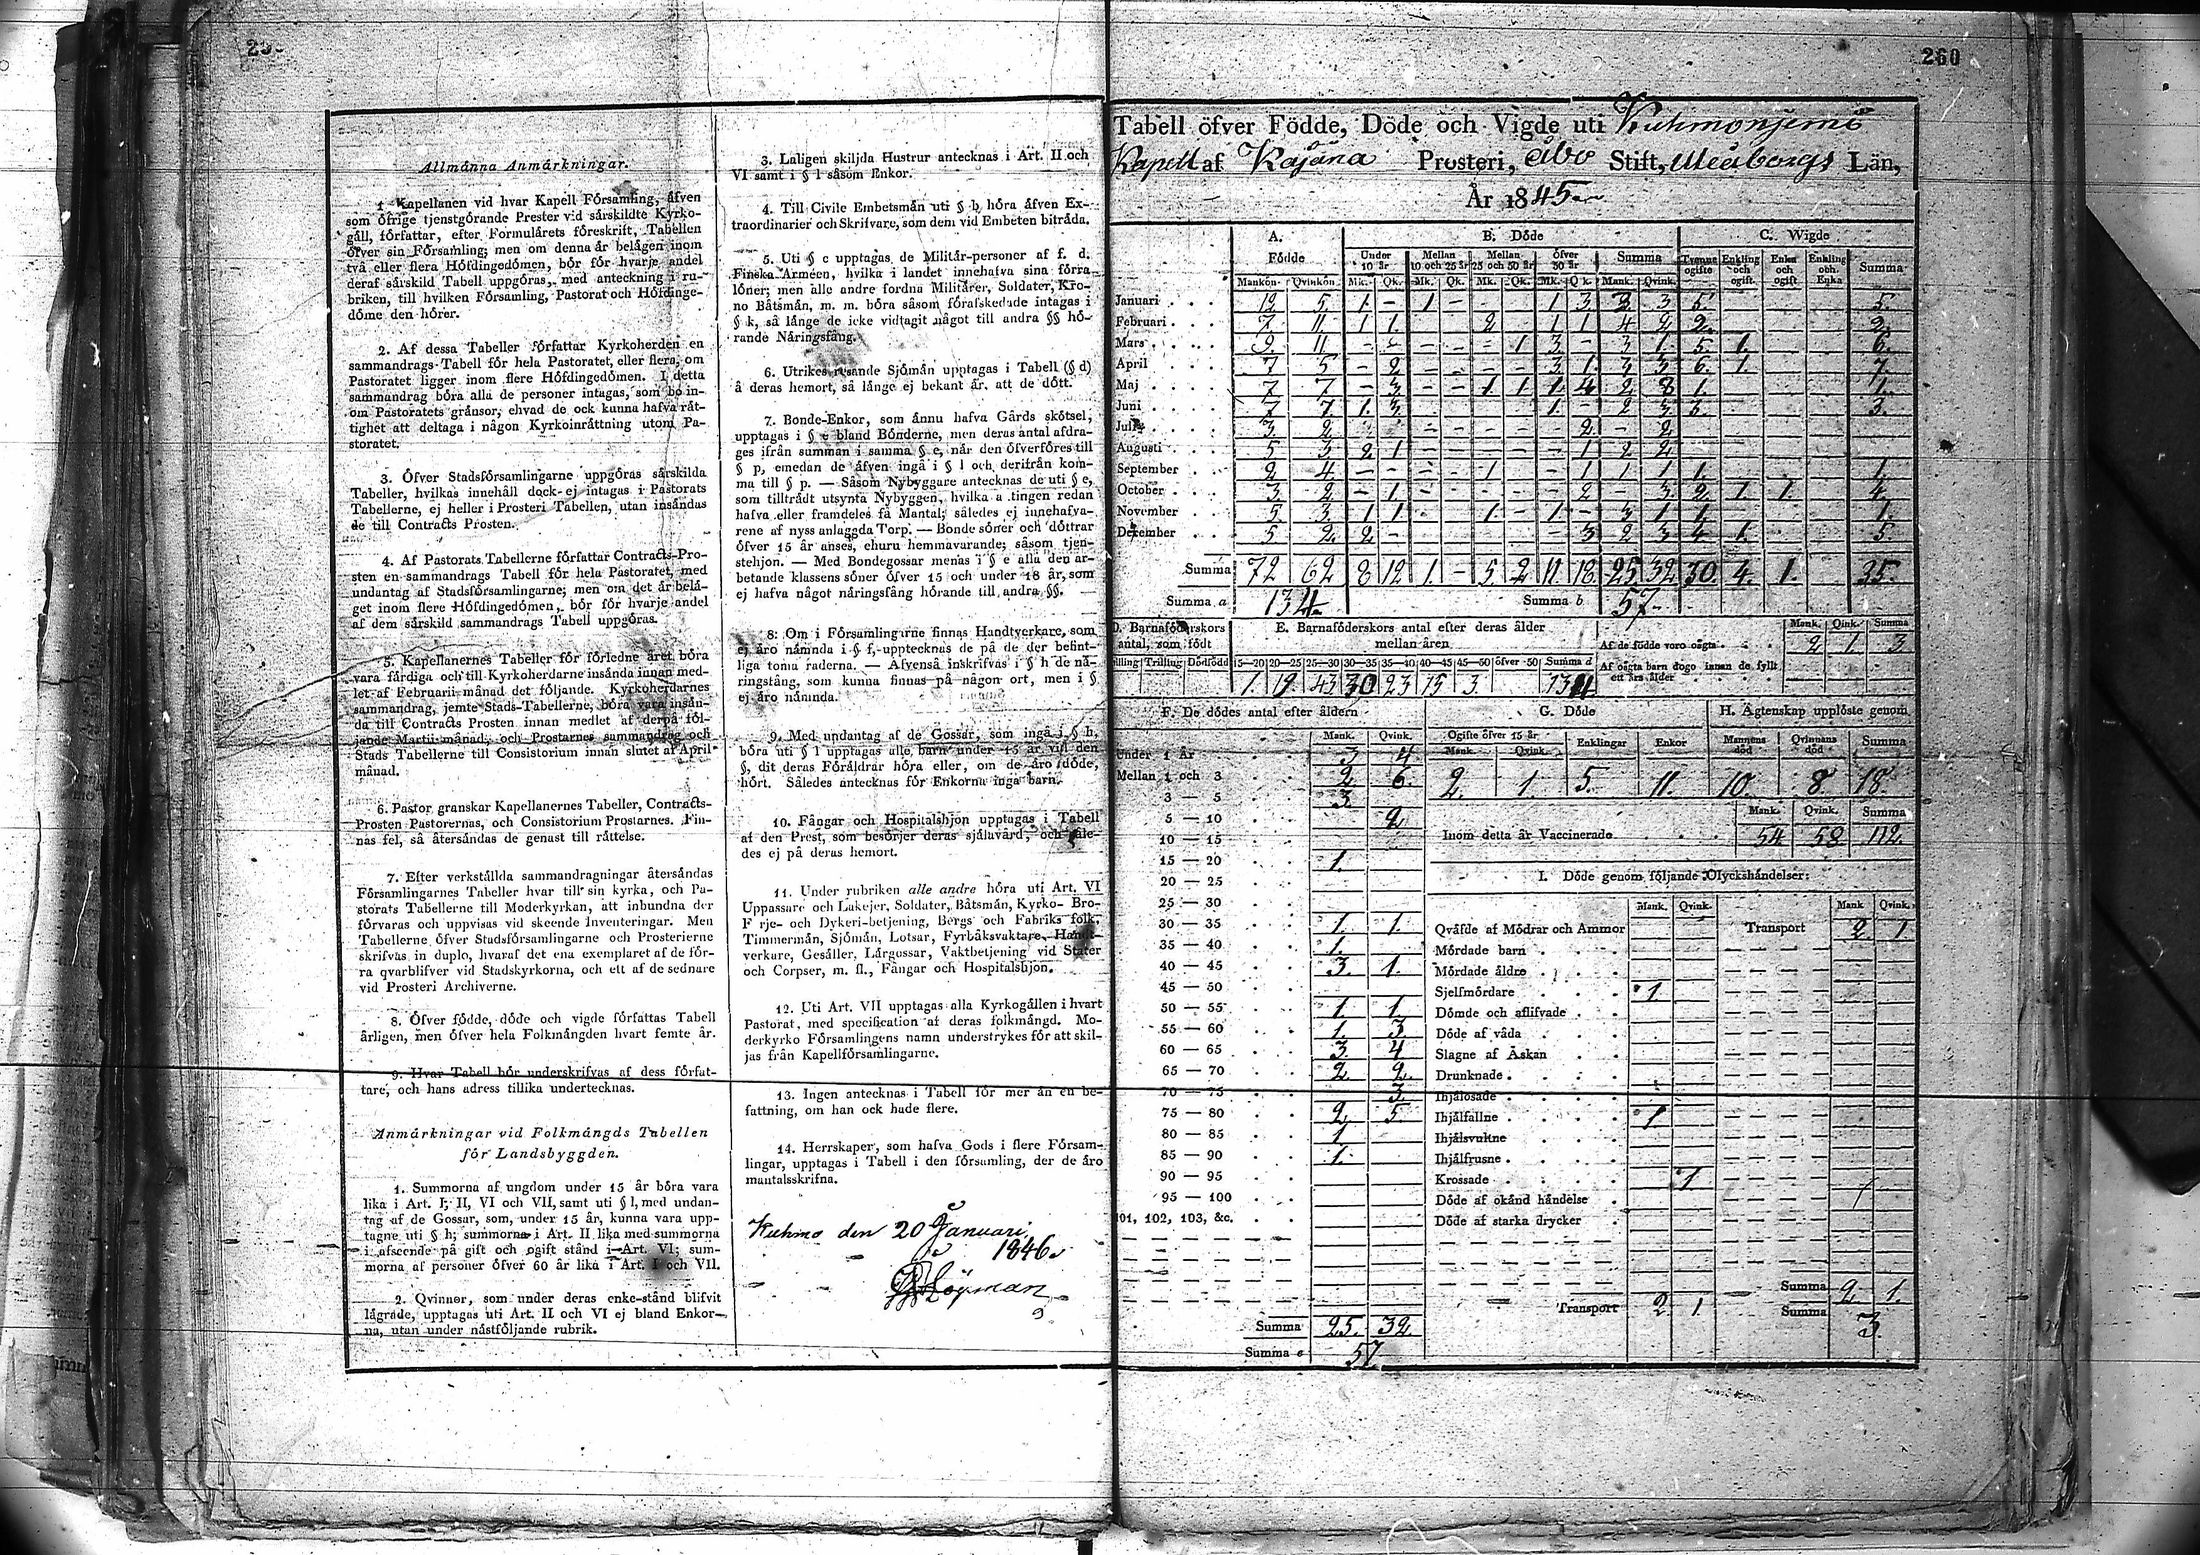 260
Allmänna Anmärkningar.
1. Kapellanen vid hvar Kapell Församling, äfven
som öfrige tjenstgörande Prester vid särskildte Kyrko-
gäll, författar, efter Formulärets föreskrift, Tabellen
öfver sin Församling; men om denna är belägen inom
två eller flera Höfdingedömen, bör för hvarje andel
deraf särskild Tabell uppgöras, med anteckning i ru-
briken, till hvilken Församling, Pastorat och Höfdinge-
döme den hörer.
2. Af dessa Tabeller författar Kyrkoherden en
sammandrags-Tabell för hela Pastoratet, eller flera, om
Pastoratet ligger inom flere Höfdingedömen. I detta
sammandrag böra alla de personer intagas, som bo in-
om Pastoratets gränsor, ehvad de ock kunna hafva rät-
tighet att deltaga i någon Kyrkoinrättning utom Pa-
storatet.
3. Öfver Stadsförsamlingarne uppgöras särskilda
Tabeller, hvilkas innehåll dock ej intagas i Pastorats
Tabellerne, ej heller i Prosteri Tabellen, utan insändas
de till Contracts Prosten.
4. Af Pastorats Tabellerne författar Contracts-Pro-
sten en sammandrags Tabell för hela Pastoratet, med
undantag af Stadsförsamlingarne; men om det är belä-
get inom flere Höfdingedömen, bör för hvarje andel
af dem särskild sammandrags Tabell uppgöras.
5. Kapellanernes Tabeller för förledne året böra
vara färdiga och till Kyrkoherdarne insända innan med-
let af Februarii månad det följande. Kyrkoherdarnes
sammandrag, jemte Stads-Tabellerne, böra vara insän-
da till Contracts Prosten innan medlet af derpå föl-
jande Martii månad, och Prostarnes sammandrag och
Stads Tabellerne till Consistorium innan slutet af April
månad.
6. Pastor granskar Kapellanernes Tabeller, Contracts-
Prosten Pastorernas, och Consistorium Prostarnes. Fin-
nas fel, så återsändas de genast till rättelse.
7. Efter verkställda sammandragningar återsändas
Församlingarnes Tabeller hvar till sin kyrka, och Pa-
storats Tabellerne till Moderkyrkan, att inbundna der
förvaras och uppvisas vid skeende Inventeringar. Men
Tabellerne öfver Stadsförsamlingarne och Prosterierne
skrifvas in duplo, hvaraf det ena exemplaret af de för-
ra qvarblifver vid Stadskyrkorna, och ett af de sednare
vid Prosteri Archiverne.
8. Öfver födde, döde och vigde författas Tabell
årligen, men öfver hela Folkmängden hvart femte år.
9. Hvar Tabell bör underskrifvas af dess förfat-
tare, och hans adress tillika undertecknas.
Anmärkningar vid Folkmängds Tabellen
för Landsbyggden.
1. Summorna af ungdom under 15 år böra vara
lika i Art. I, II, VI och VII, samt uti § l, med undan-
tag af de Gossar, som, under 15 år, kunna vara upp-
tagne uti § h; summorna i Art. II lika med summorna
i afseende på gift och ogift stånd i Art. VI; sum-
morna af personer öfver 60 år lika i Art. I och VII.
2. Qvinnor, som under deras enke-stånd blifvit
lägrade, upptagas uti Art. II och VI ej bland Enkor-
na, utan under nästföljande rubrik.
3. Laligen skiljda Hustrur antecknas i Art. II och
VI samt i § l såsom Enkor.
4. Till Civile Embetsmän uti § b höra äfven Ex-
traordinarier och Skrifvare, som dem vid Embeten biträda.
5. Uti § c upptagas de Militär-personer af f. d.
Finska Arméen, hvilka i landet innehafva sina förra
löner; men alle andre fordna Militärer, Soldater, Kro-
no Båtsmän, m. m. böra såsom förafskedade intagas i
§ k, så länge de icke vidtagit något till andra §§ hö-
rande Näringsfång.
6. Utrikes resande Sjömän upptagas i Tabell (§ d)
å deras hemort, så länge ej bekant är, att de dött.
7. Bonde-Enkor, som ännu hafva Gårds skötsel,
upptagas i § e bland Bönderne, men deras antal afdra-
ges ifrån summan i samma § e, när den öfverföres till
§ p, emedan de äfven ingå i § l och derifrån kom-
ma till § p. — Såsom Nybyggare antecknas de uti § e,
som tillträdt utsynta Nybyggen, hvilka antingen redan
hafva eller framdeles få Mantal; således ej innehafva-
rene af nyss anlaggda Torp. — Bonde söner och döttrar
öfver 15 år anses, ehuru hemmavarande, såsom tjen-
stehjon. — Med Bondegossar menas i § e alla den ar-
betande klassens söner öfver 15 och under 18 år, som
ej hafva något näringsfång hörande till andra §§.
8. Om i Församlingarne finnas Handtverkare, som
ej äro nämnda i § f, upptecknas de på de der befint-
liga toma raderna. — Äfvenså inskrifvas i § h de nä-
ringsfång, som kunna finnas på någon ort, men i §
ej äro nämnda.
9. Med undantag af de Gossar, som ingå i § h,
böra uti § l upptagas alle barn under 15 år vid den
§, dit deras Föräldrar höra eller, om de äro döde,
hört. Således antecknas för Enkorna inga barn.
10. Fångar och Hospitalshjon upptagas i Tabell
af den Prest, som besörjer deras själavård, och såle-
des ej på deras hemort.
11. Under rubriken alle andre höra uti Art. VI
Uppassare och Lakejer, Soldater, Båtsmän, Kyrko- Bro-
Färje- och Dykeri-betjening, Bergs och Fabriks folk,
Timmermän, Sjömän, Lotsar, Fyrbåksvaktare, Handt-
verkare, Gesäller, Lärgossar, Vaktbetjening vid Stater
och Corpser, m. fl., Fångar och Hospitalshjon.
12. Uti Art. VII upptagas alla Kyrkogällen i hvart
Pastorat, med specification af deras folkmängd. Mo-
derkyrko Församlingens namn understrykes för att skil-
jas från Kapellförsamlingarne.
13. Ingen antecknas i Tabell för mer än en be-
fattning, om han ock hade flere.
14. Herrskaper, som hafva Gods i flere Försam-
lingar, upptagas i Tabell i den församling, der de äro
mantalsskrifna.
Kuhmo den 20 Januari
1846.
Tabell öfver Födde, Döde och Vigde uti Kuhmonjemi
Kapell af Kajana Prosteri, Åbo Stift, Uleåborgs Län,
År 1845
A. B. Döde C. Wigde
Födde Under 10 år Mellan 10 och 25 år Mellan 25 och 50 år öfver 50 år Summa Tvenne ogifte Enkling och ogift Enka och ogift Enkling och Enka Summa
Mankön Qvinkön Mk. Qk. Mk. Qk. Mk. Qk. Mk. Qk. Mank. Qvink.
Januari 12 5 1 - 1 - 1 3 3 3 5 5
Februari 7 11 1 1 2 - 1 1 4 2 2 2
Mars 9 11 - - - - - 1 3 - 3 1 5 1 6
April 7 5 - 2 - - - - 3 1 3 3 6 1 7
Maj 7 7 - 3 - - 1 1 1 4 2 8 1 1
Juni 7 7 1 3 1 - 2 3 3 3
Julii 3 2 - - - - 2 - 2
Augusti 5 3 2 1 - - - - - 1 2 2
September 2 4 - - - - 1 - - 1 1 1 1 1
October 3 2 - 1 - - - - - 2 - 3 2 1 1 4
November 5 3 1 1 - - 1 - 1 - 3 1 1 1
December 5 2 2 - - - 3 2 3 4 1 5
Summa 72 62 8 12 1 - 5 2 11 18 25 32 30 4 1 35
Summa a 134 Summa b 57
D. Barnaföderskors antal, som födt E. Barnaföderskors antal efter deras ålder mellan åren
Mank. Qvink. Summa
Af de födde voro oägta 2 1 3
Af oägta barn dogo innan de fyllt ett års ålder
Tvilling Trilling Dödfödd 15—20 20—25 25—30 30—35 35—40 40—45 45—50 öfver 50 Summa d
1 19 43 30 23 15 3 134
F. De dödes antal efter åldern G. Döde H. Ägtenskap upplöste genom
Mank. Qvink. Ogifte öfver 15 år Enklingar Enkor Mannens död Qvinnans död Summa
Mank. Qvink.
2 1 5 11 10 8 18
Under 1 År 3 4
Mellan 1 och 3 2 6
3 — 5 3
5 — 10 2
10 — 15
15 — 20 1
20 — 25
25 — 30
30 — 35 1 1
35 — 40 1
40 — 45 3 1
45 — 50
50 — 55 1 1
55 — 60 1 3
60 — 65 3 4
65 — 70 2 2
70 — 75 3
75 — 80 2 5
80 — 85 1
85 — 90 1
90 — 95
95 — 100
101, 102, 103, &c.
Summa 25 32
Summa e 57
Mank. Qvink. Summa
Inom detta år Vaccinerade 54 58 112
I. Döde genom följande Olyckshändelser:
Mank. Qvink. Mank Qvink.
Qväfde af Mödrar och Ammor Transport 2 1
Mördade barn
Mördade äldre
Sjelfmördare 1
Dömde och aflifvade
Döde af våda
Slagne af Åskan
Drunknade
Ihjälosade
Ihjälfallne 1
Ihjälsvultne
Ihjälfrusne
Krossade 1
Döde af okänd händelse
Döde af starka drycker
Summa 2 1
Transport 2 1 Summa 3